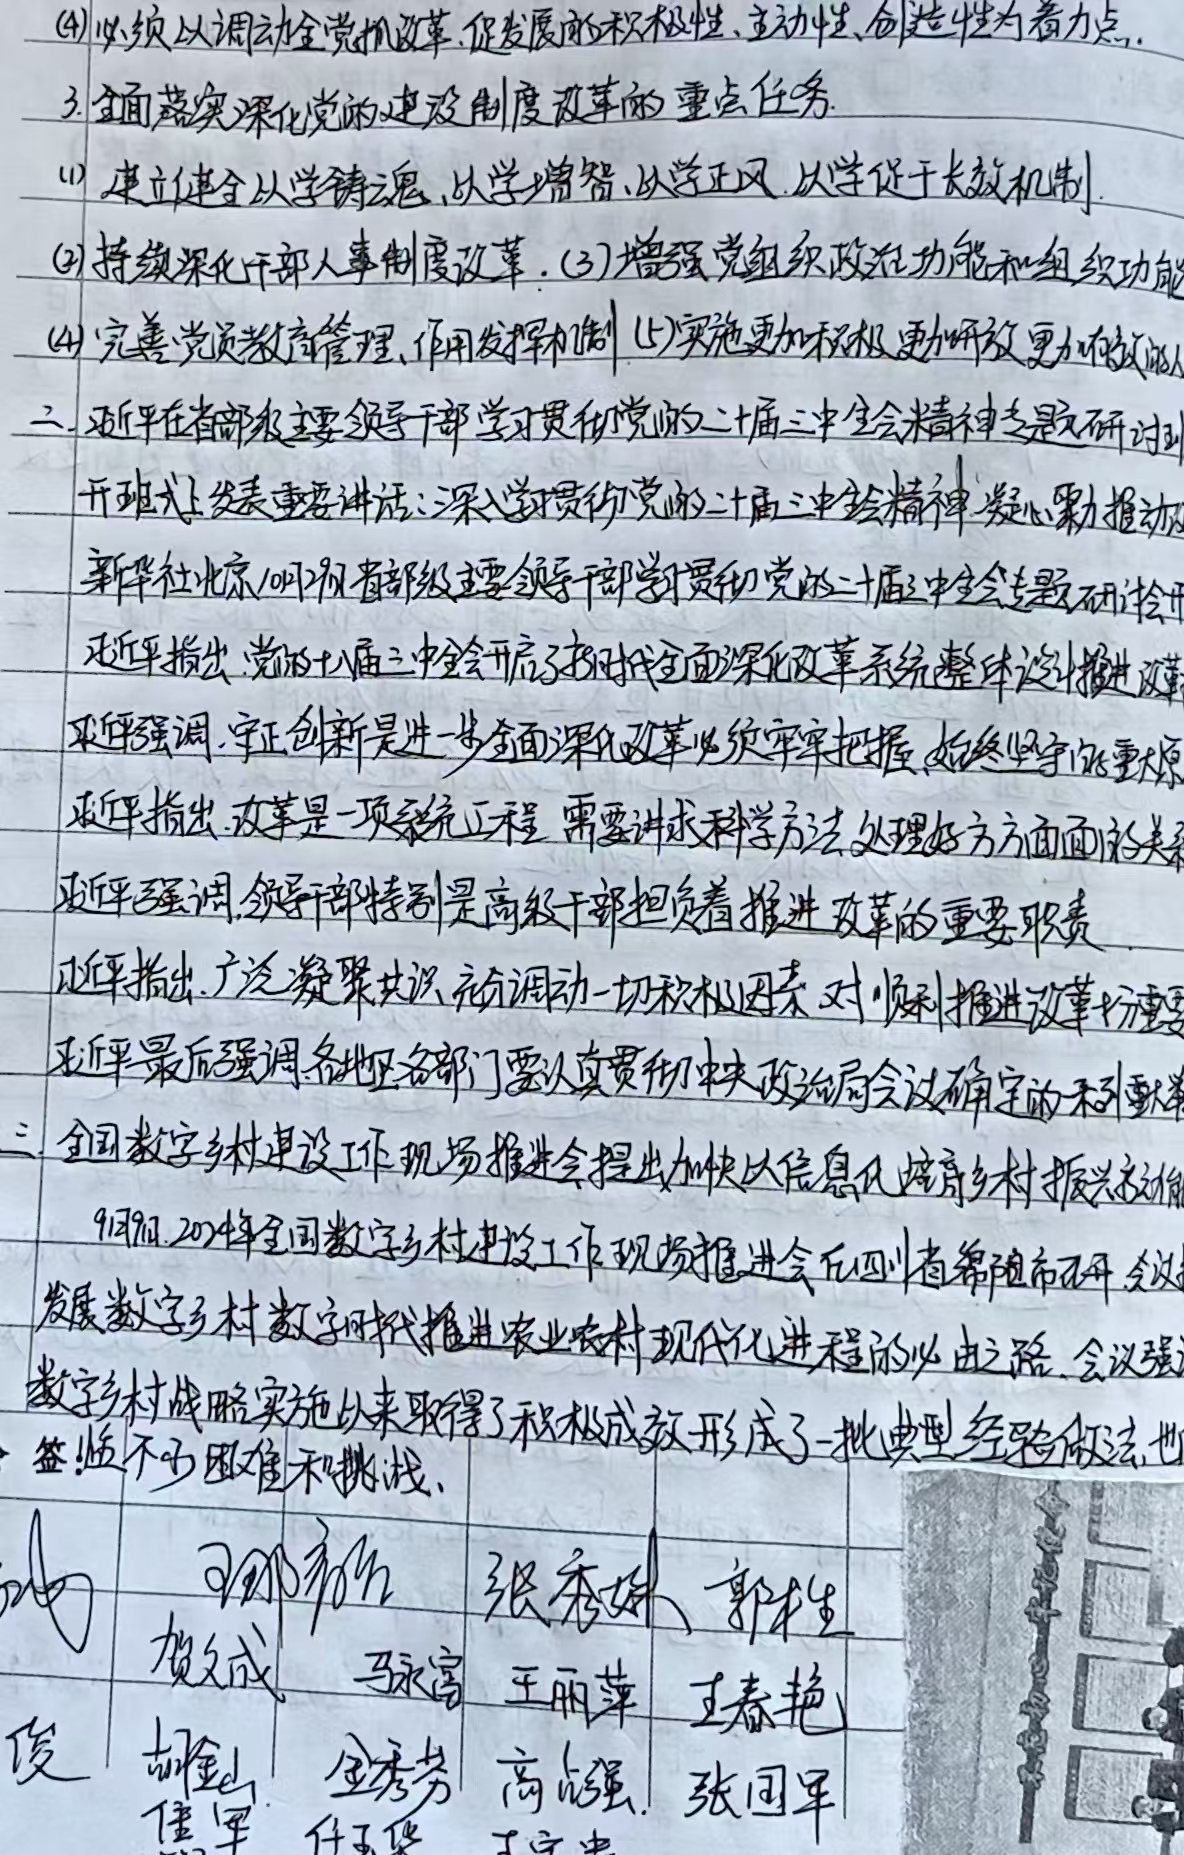 (4)必须以调动全党抓改革、促发展的积极性、主动性、创造性为着力点.
3.全面落实深化党的建设制度改革的重点任务.
(1) 建立健全以学铸魂、以学增智、以学正风、以学促干长效机制.
(2)持续深化干部人事制度改革.(3)增强党组织政治功能和组织功能
(4)完善党员教育管理、作用发挥机制 (5)实施更加积极更加开放更加有效的人
二、习近平在省部级主要领导干部学习贯彻党的二十届三中全会精神专题研讨班
开班式上发表重要讲话:深入学习贯彻党的二十届三中全会精神.凝心聚力推动改
新华社北京10月29日省部级主要领导干部学习贯彻党的二十届三中全会专题研讨会开
习近平指出.党的十八届三中全会开启了新时代全面深化改革系统整体设计推进改革
习近平强调.守正创新是进一步全面深化改革必须牢牢把握、始终坚守的重大原
习近平指出.改革是一项系统工程 需要讲求科学方法 处理好方方面面的关系
习近平强调.领导干部特别是高级干部担负着推进改革的重要职责
习近平指出.广泛凝聚共识 充分调动一切积极因素 对顺利推进改革十分重要
习近平最后强调.各地区各部门要认真贯彻中央政治局会议确定的一系列重大举
三、全国数字乡村建设工作现场推进会提出加快以信息化培育乡村振兴新动能
9月9日.2024年全国数字乡村建设工作现场推进会在四川省绵阳市召开 会议
发展数字乡村 数字时代推进农业农村现代化进程的必由之路.会议强调
数字乡村战略实施以来取得了积极成效 形成了一批典型经验做法.也
签!临不少困难和挑战、
张秀妹 郭桂生
贺文成 马永富 王丽萍 王春艳
俊 胡金山 金秀芳 高占强 张国军
佳军 任玉华